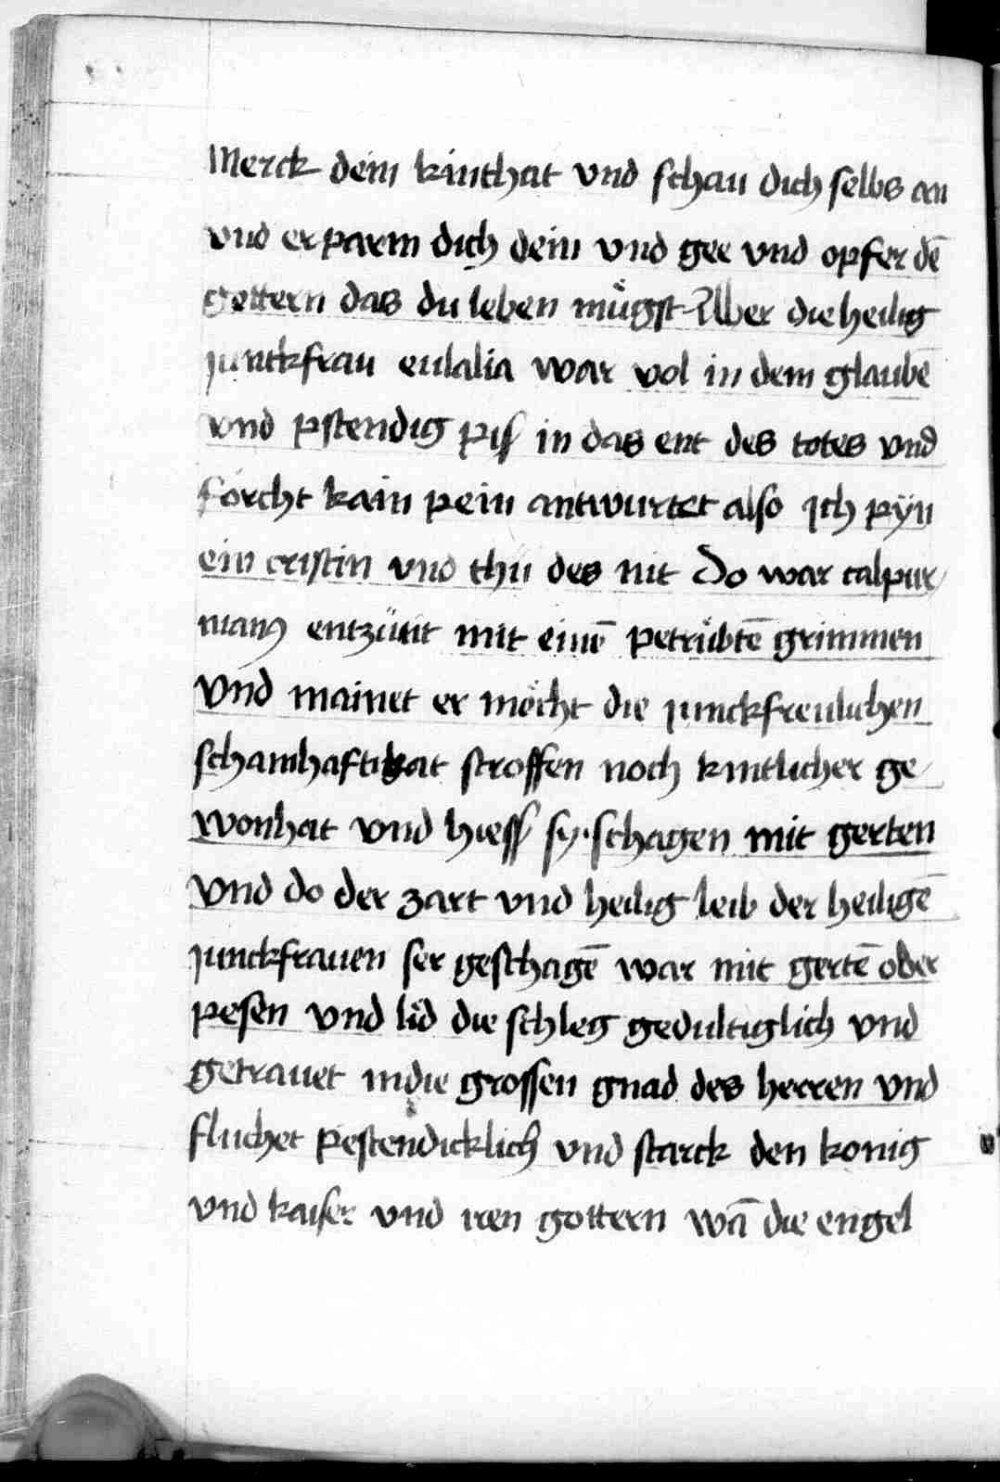 Merck dein kinthat vnd schau dich selbs an
vnd erparm dich dein vnd gee vnd opfer dē
gettern das du leben mügst Aber die heilig
junckfrau eulalia war vol in dem glaubē
vnd pstendig piſ in das ent des totes vnd
forcht kain pein antwurtet also Ich pÿn
ein cristin vnd thü des nit Do war calpur
nianꝰ entzünt mit einē petrübtē grimmen
Vnd mainet er möcht die junckfreulichen
schamhaftikat stroffen noch kintlicher ge
wonhat vnd hiess sy schagen mit gerten
Vnd do der zart vnd heilig leib der heiligē
junckfrauen ser geschagē war mit gertē oder
pesen vnd lid die schleg gedultiglich vnd
getrauet in die grossen gnad des herren vnd
fluchet pestendicklich vnd starck den konig
vnd kaiser vnd iren gottern wā die engel